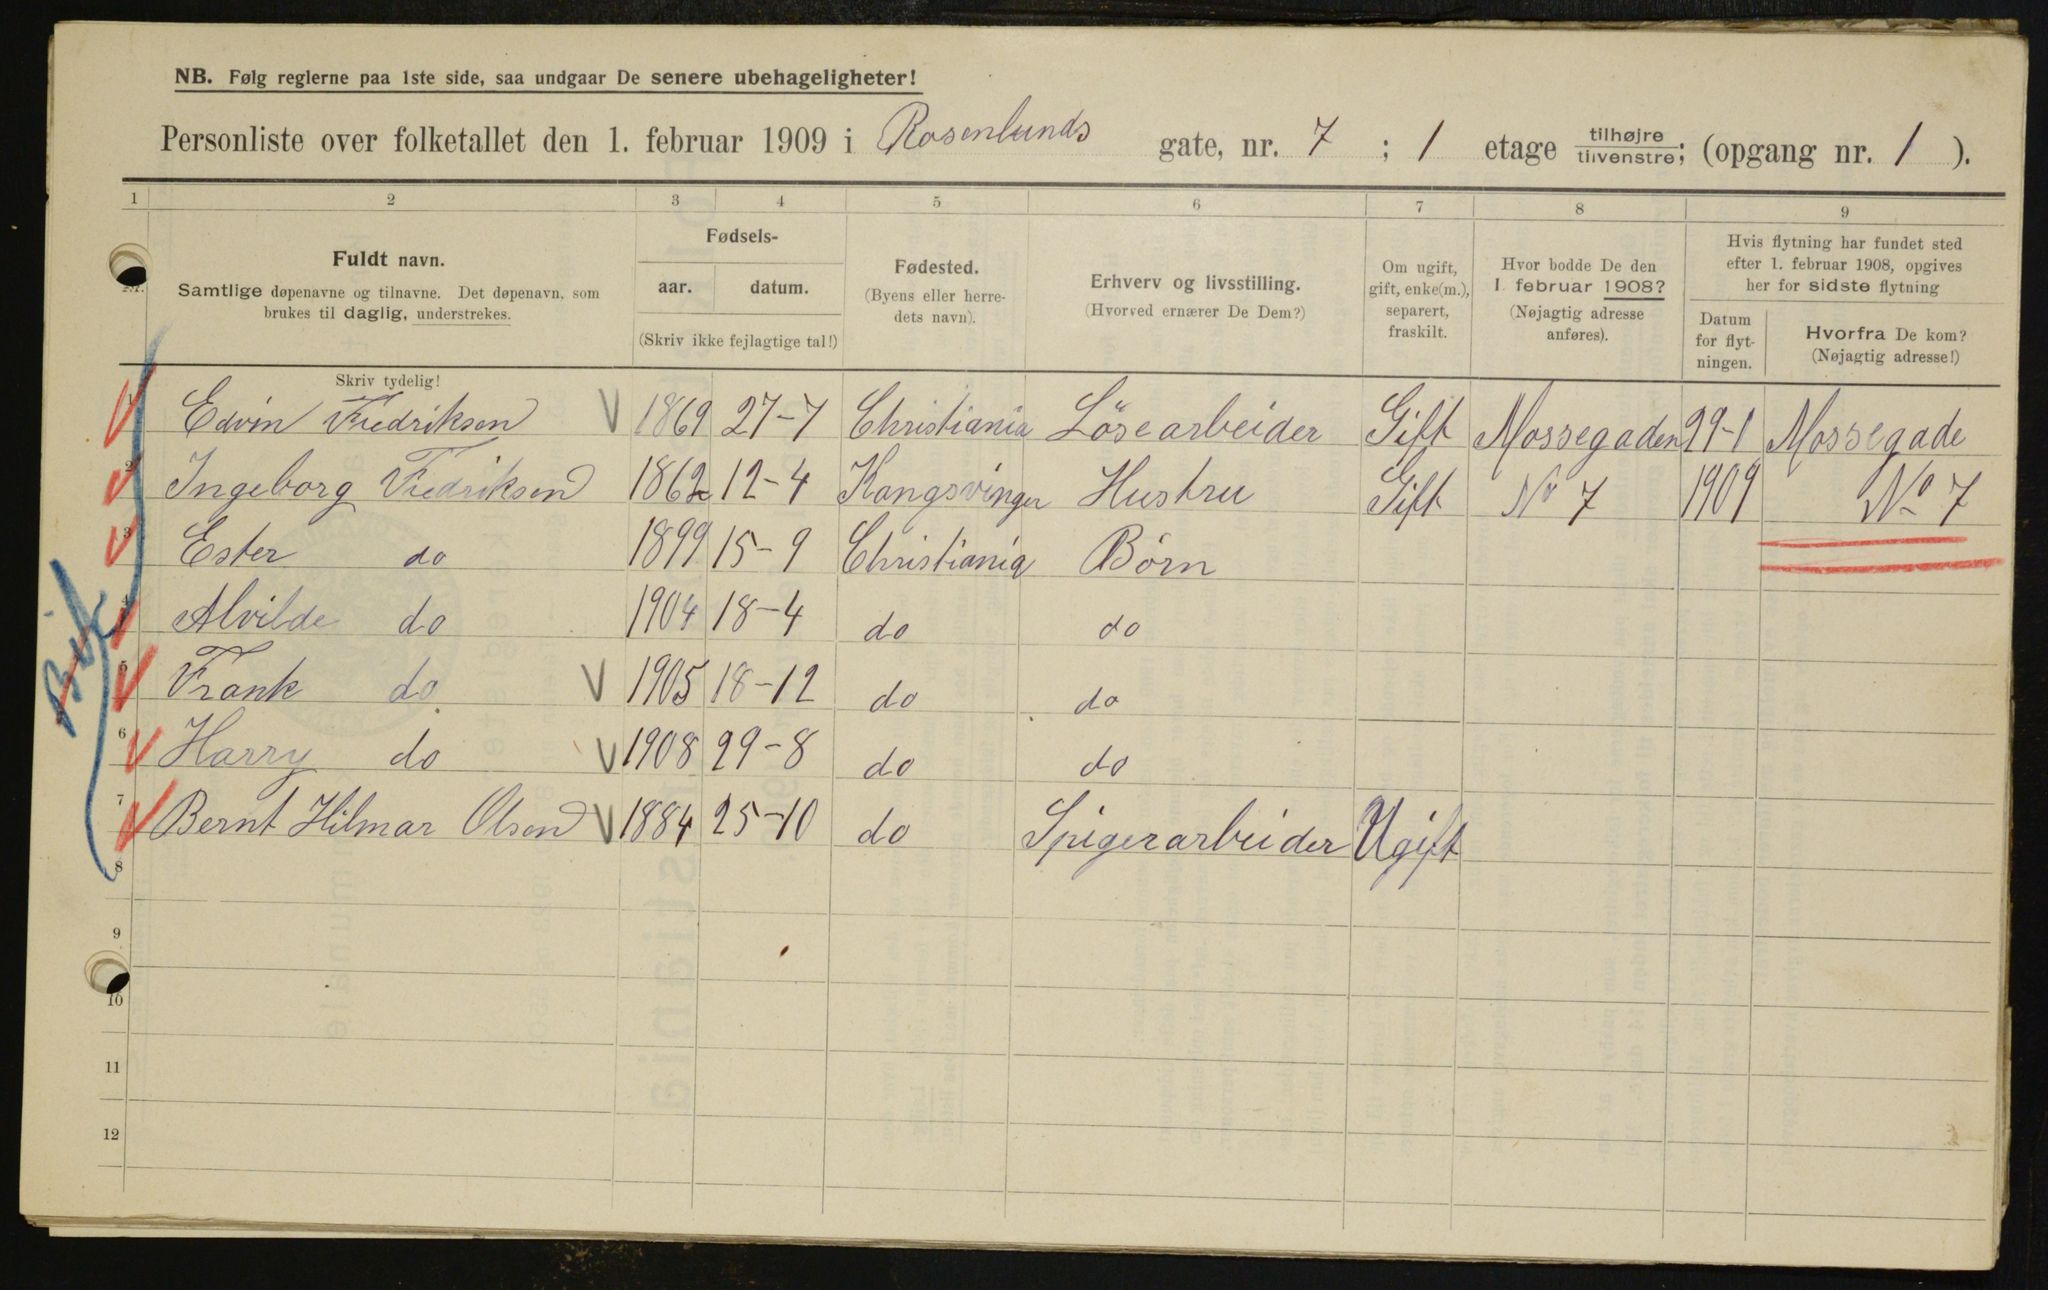 NB. Følg reglerne paa 1ste side, saa undgaar De senere ubehageligheter!
Personliste over folketallet den 1. februar 1909 i Rosenlunds gate, nr. 7 ; 1 etage tilhøjre/tilvenstre; (opgang nr. 1 ).
1 2 3 4 5 6 7 8 9
Fuldt navn.
Samtlige døpenavne og tilnavne. Det døpenavn, som
brukes til daglig, understrekes.
Skriv tydelig!
Fødsels-
aar. datum.
(Skriv ikke fejlagtige tal!)
Fødested.
(Byens eller herre-
dets navn).
Erhverv og livsstilling.
(Hvorved ernærer De Dem?)
Om ugift,
gift, enke(m.),
separert,
fraskilt.
Hvor bodde De den
1. februar 1908?
(Nøjagtig adresse
anføres).
Hvis flytning har fundet sted
efter 1. februar 1908, opgives
her for sidste flytning
Datum
for flyt-
ningen.
Hvorfra De kom?
(Nøjagtig adresse!)
1 Edvin Fredriksen 1869 27-7 Christiania Løsearbeider Gift Mossegaden 29-1 Mossegade
2 Ingeborg Fredriksen 1862 12-4 Kongsvinger Hustru Gift No 7 1909 No 7
3 Ester do 1899 15-9 Christiania Børn
4 Alvilde do 1904 18-4 do do
5 Frank do 1905 18-12 do do
6 Harry do 1908 29-8 do do
7 Bernt Hilmar Olsen 1884 25-10 do Spigerarbeider Ugift
8
9
10
11
12